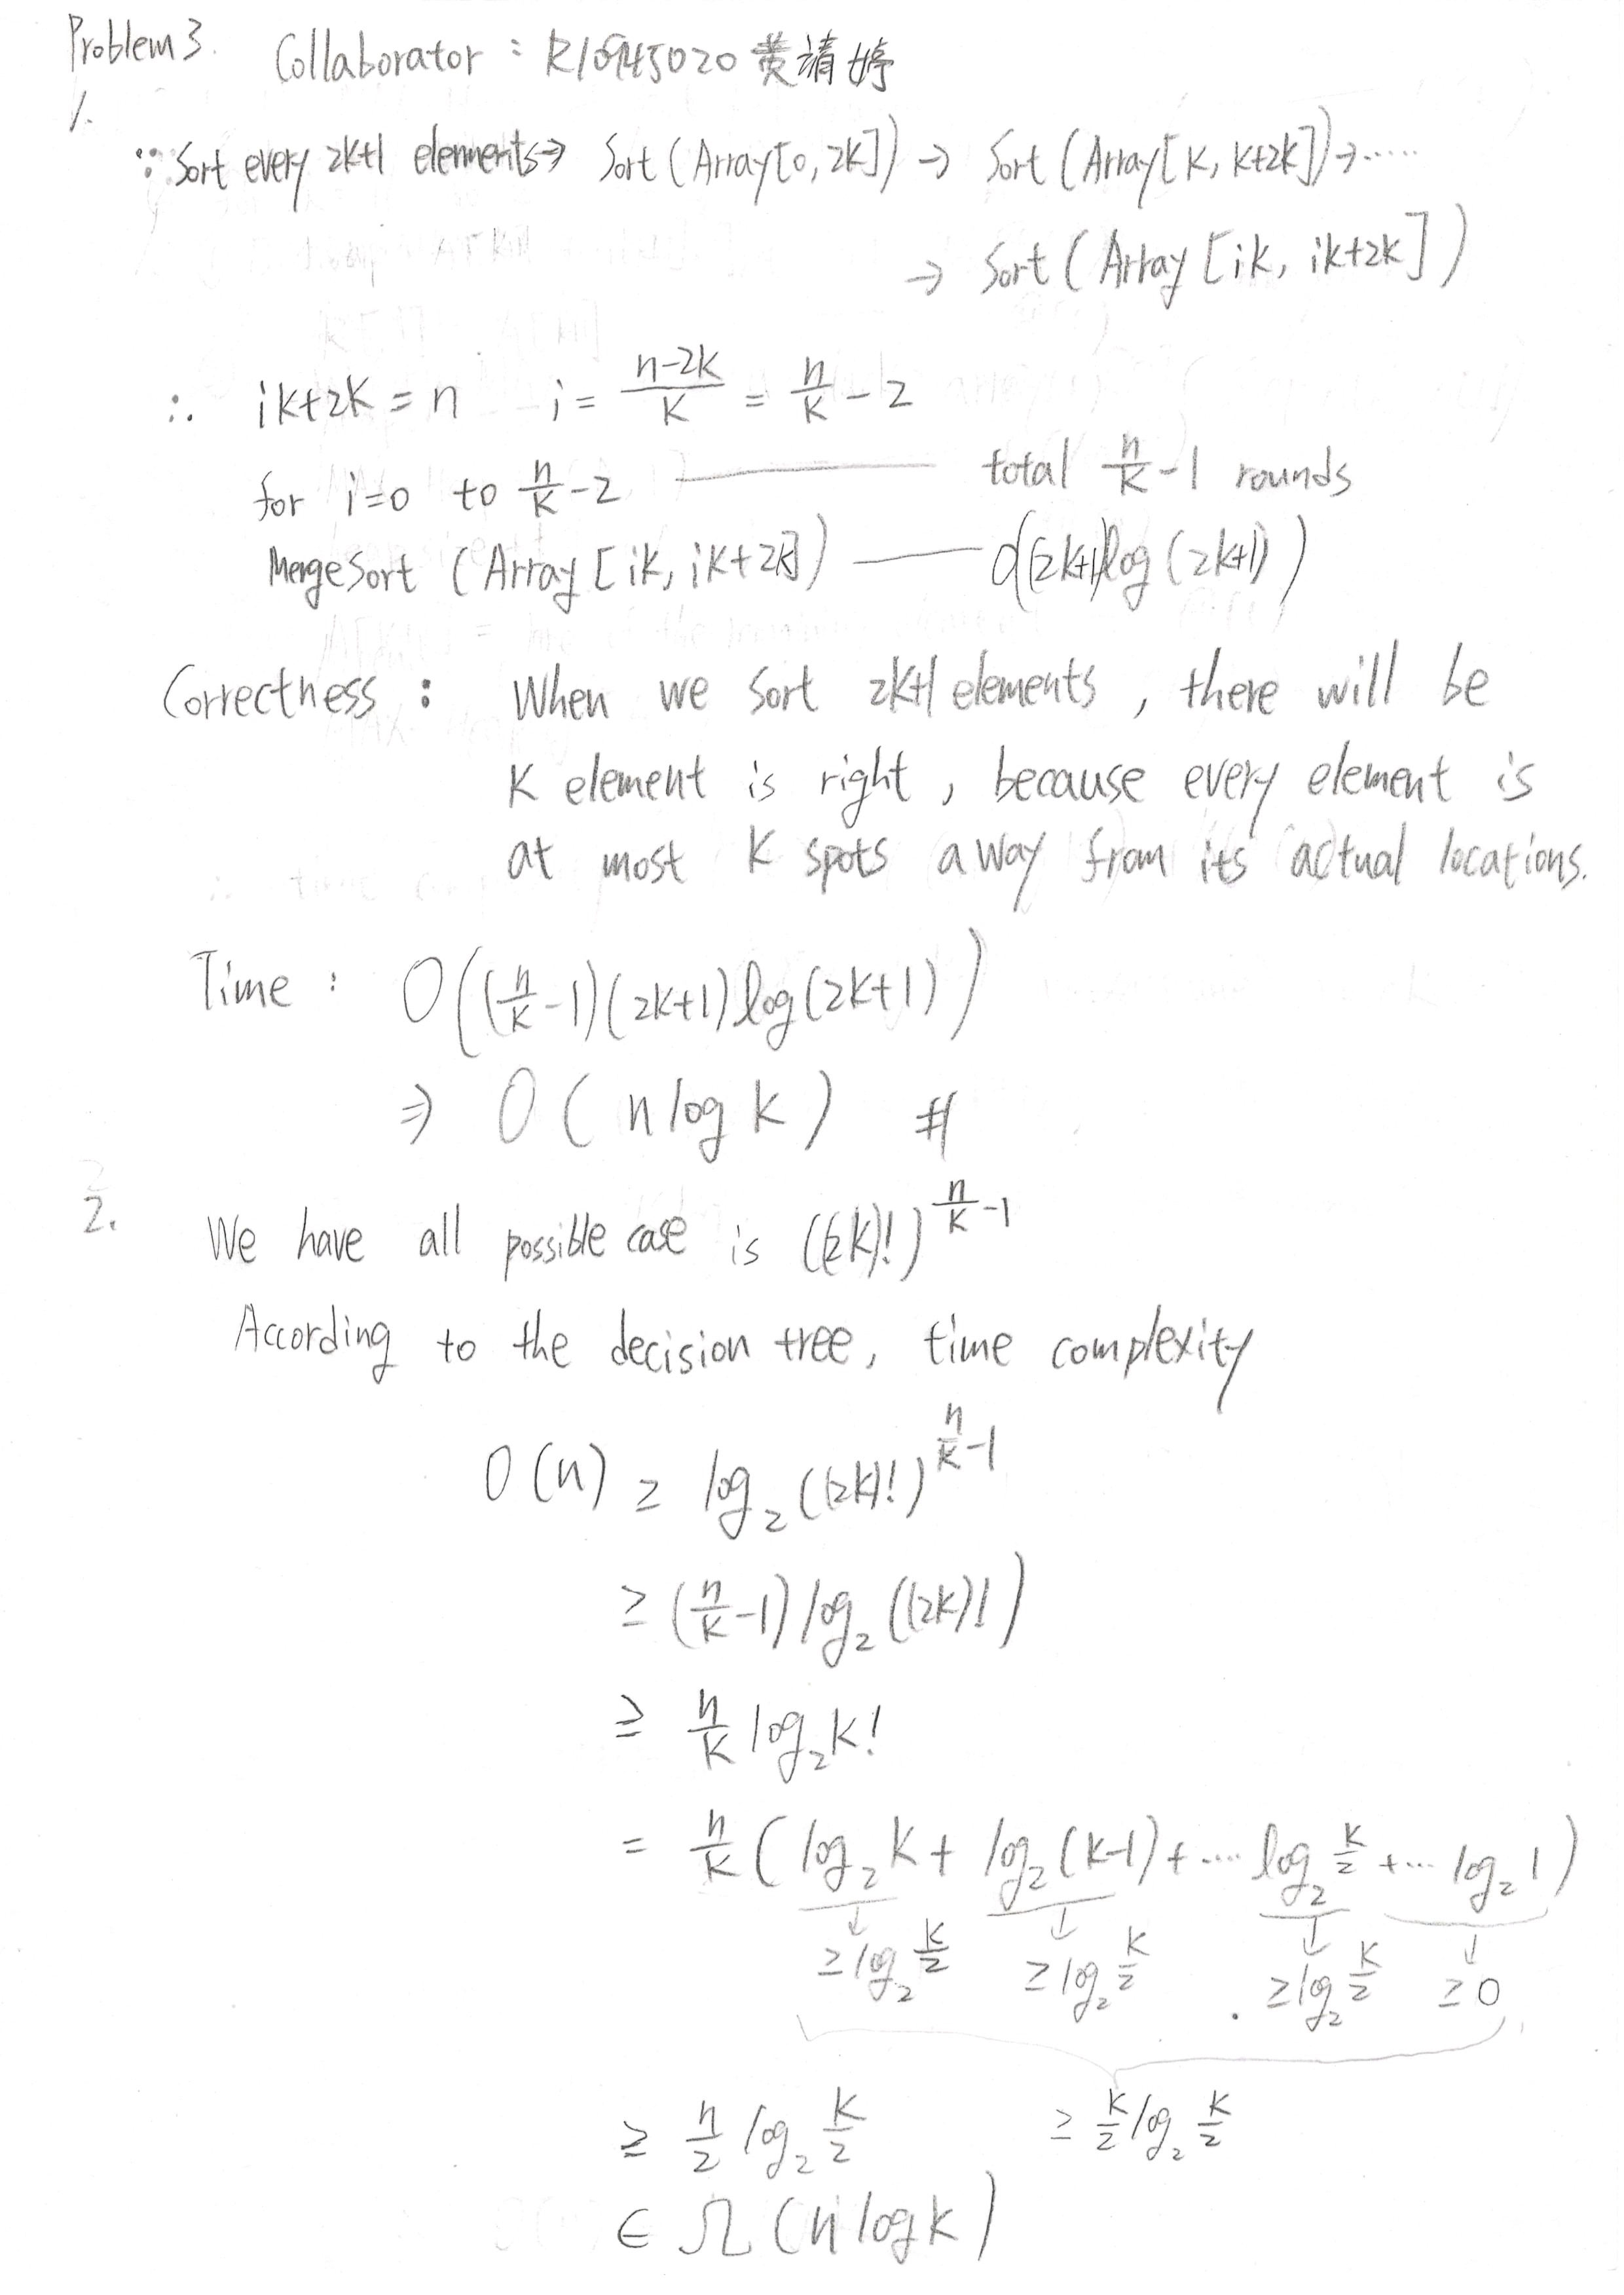 Problem 3. Collaborator : R10945020 黃靖婷
1.
∵ Sort every 2k+1 elements ⇒ Sort (Array[0, 2k]) → Sort (Array[k, k+2k]) → ......
→ Sort (Array [ik, ik+2k])
∴ ik+2k = n i = (n-2k)/k = n/k - 2
for i=0 to n/k - 2 —— total n/k - 1 rounds
MergeSort (Array [ik, ik+2k]) —— O((2k+1)log(2k+1))
Correctness : When we sort 2k+1 elements, there will be
k element is right, because every element is
at most k spots away from its actual locations.
Time : O((n/k - 1)(2k+1)log(2k+1))
⇒ O(n log k) #
2.
We have all possible case is ((2k)!)^(n/k - 1)
According to the decision tree, time complexity
O(n) ≥ log₂((2k)!)^(n/k - 1)
≥ (n/k - 1) log₂((2k)!)
≥ n/k log₂k!
= n/k (log₂k + log₂(k-1) + .... log₂ k/2 + ... log₂1)
↓ ↓ ↓ ↓
≥ log₂ k/2 ≥ log₂ k/2 ≥ log₂ k/2 ≥ 0
≥ n/2 log₂ k/2 ≥ k/2 log₂ k/2
∈ Ω(n log k)